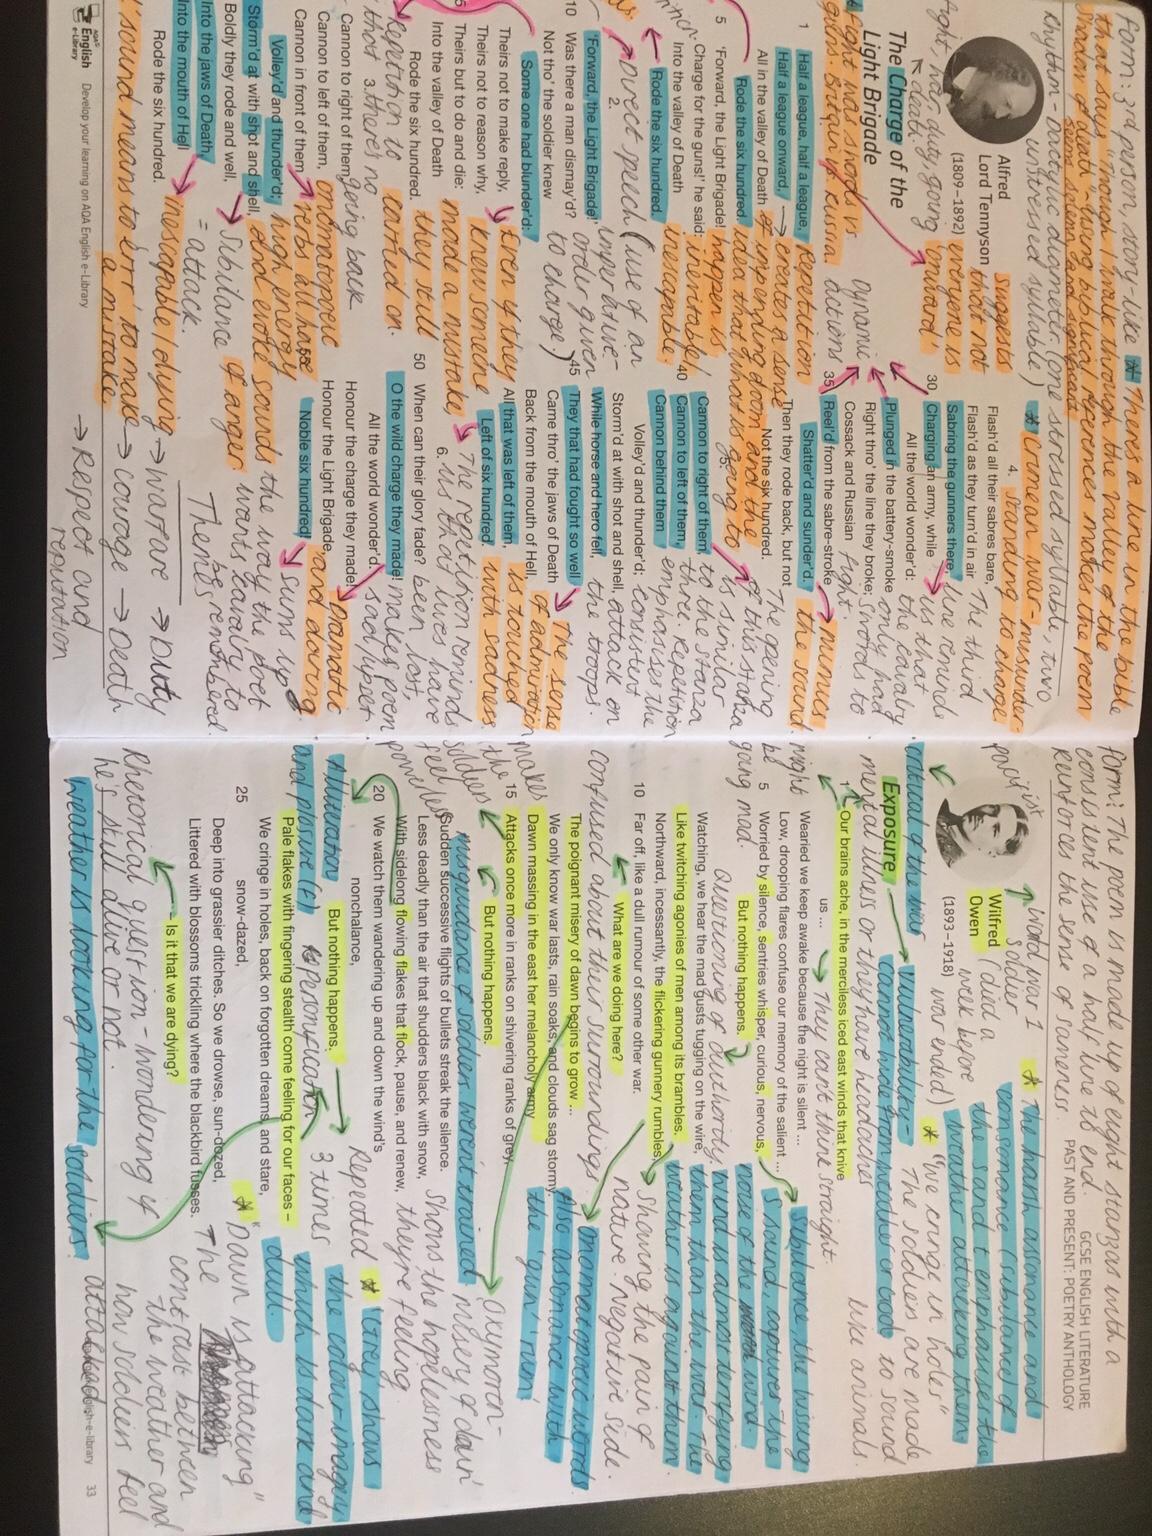 Form: 3rd person, story-like
* There's a line in the bible
that says "Though I walk through the valley of the
shadow of death" - using biblical references makes the poem
seem solemn and significant
rhythm - dactylic digmeter (one stressed syllable, two
unstressed syllable)
Alfred
Lord Tennyson
(1809–1892)
Suggests
that not
everyone is
on board
* Crimean war - misunder-
standing to charge
The Charge of the
Light Brigade
→ death
1
Half a league, half a league,
Half a league onward,
All in the valley of Death
Rode the six hundred.
5
'Forward, the Light Brigade!
Charge for the guns!' he said:
Into the valley of Death
Rode the six hundred.
2.
'Forward, the Light Brigade!'
10
Was there a man dismay'd?
Not tho' the soldier knew
Some one had blunder'd:
Theirs not to make reply,
Theirs not to reason why,
15
Theirs but to do and die:
Into the valley of Death
Rode the six hundred.
3.
Cannon to right of them,
Cannon to left of them,
Cannon in front of them
Volley'd and thunder'd;
Storm'd at with shot and shell,
Boldly they rode and well,
Into the jaws of Death,
Into the mouth of Hell
Rode the six hundred.
Repetition
creates a sense
of impending doom and the
idea that what is going to
happen is
inevitable/
inescapable.
Direct speech (use of an
imperative -
order given
to charge)
Even if they
knew someone
made a mistake,
they still
carried on.
Repetition to
that there's no
going back
onomatopoeic
verbs all have
high energy
and evoke sounds
Sibilance of anger
= attack.
inescapable/dying
'sound means to err' to make
a mistake
4.
Flash'd all their sabres bare,
Flash'd as they turn'd in air
Sabring the gunners there,
30
Charging an army, while
All the world wonder'd:
Plunged in the battery-smoke
Right thro' the line they broke;
Cossack and Russian
35
Reel'd from the sabre-stroke
Shatter'd and sunder'd.
Then they rode back, but not
Not the six hundred.
5.
Cannon to right of them,
40
Cannon to left of them,
Cannon behind them
Volley'd and thunder'd;
Storm'd at with shot and shell,
While horse and hero fell,
45
They that had fought so well
Came thro' the jaws of Death
Back from the mouth of Hell,
All that was left of them,
Left of six hundred.
6.
50
When can their glory fade?
O the wild charge they made!
All the world wonder'd.
Honour the charge they made!
Honour the Light Brigade,
Noble six hundred!
Dynamic
actions
The third
line reminds
us that
the cavalry
only had
swords to
fight.
mimics
the sound.
The opening
of this stanza
is similar
to the stanza
three. Repetition
emphasises the
consistent
attack on
the troops.
The sense
of admiration
is touched
with sadness
The repetition reminds
us that lives have
been lost.
makes poem
sad/upset
romantic
and daring
sums up
the way the poet
wants cavalry to
be remembered.
Themes
→ warfare → Duty
→ courage → Death
→ Respect and
reputation
AQA
English
e-Library
Develop your learning on AQA English e-Library
GCSE ENGLISH LITERATURE
PAST AND PRESENT: POETRY ANTHOLOGY
Form: The poem is made up of eight stanzas with a
consistent use of a half line to end.
reinforces the sense of sameness.
Wilfred
Owen
(1893–1918)
world war 1
soldier
(died a
week before
war ended)
* The harsh assonance and
consonance (sibilance of
the s and t emphasises the
weather attacking them
critical of the war
Exposure
→ Vulnerability -
cannot hide from weather or god
mental illness or they have headaches
* "We cringe in holes"
The soldiers are made
to sound
like animals.
1
Our brains ache, in the merciless iced east winds that knive
us ...
Wearied we keep awake because the night is silent ...
Low, drooping flares confuse our memory of the salient ...
5
Worried by silence, sentries whisper, curious, nervous,
But nothing happens.
Watching, we hear the mad gusts tugging on the wire,
Like twitching agonies of men among its brambles.
Northward, incessantly, the flickering gunnery rumbles,
10
Far off, like a dull rumour of some other war.
What are we doing here?
The poignant misery of dawn begins to grow ...
We only know war lasts, rain soaks, and clouds sag stormy.
Dawn massing in the east her melancholy army
15
Attacks once more in ranks on shivering ranks of grey,
But nothing happens.
Sudden successive flights of bullets streak the silence.
Less deadly than the air that shudders black with snow,
With sidelong flowing flakes that flock, pause, and renew,
20
We watch them wandering up and down the wind's
nonchalance,
But nothing happens.
Pale flakes with fingering stealth come feeling for our faces –
We cringe in holes, back on forgotten dreams, and stare,
snow-dazed,
25
Deep into grassier ditches. So we drowse, sun-dozed,
Littered with blossoms trickling where the blackbird fusses.
Is it that we are dying?
They can't think straight.
might
be
going mad
Questioning of authority.
confused about their surroundings.
Sibilance the hissing
s sound, captures the
noise of the wind.
wind is almost terrifying
them than the war. The
weather is against them
Showing the pain of
nature. Negative side.
onomatopoeic words.
Also assonance with
the 'gun' 'rum'
Oxymoron -
misery of dawn
misguidance of soldiers weren't trained
makes
the
soldiers
feel
powerless
Shows the hopelessness
they're feeling
Alliteration
and plosive (F)
personification
Repeated
3 times
* 'Grey' shows
the colour imagery
which is dark and
dull.
* "Dawn is attacking"
The contrast between
the weather and
how soldiers feel
attacked
Rhetorical question - wondering if
he's still alive or not.
weather is looking for the soldiers.
33